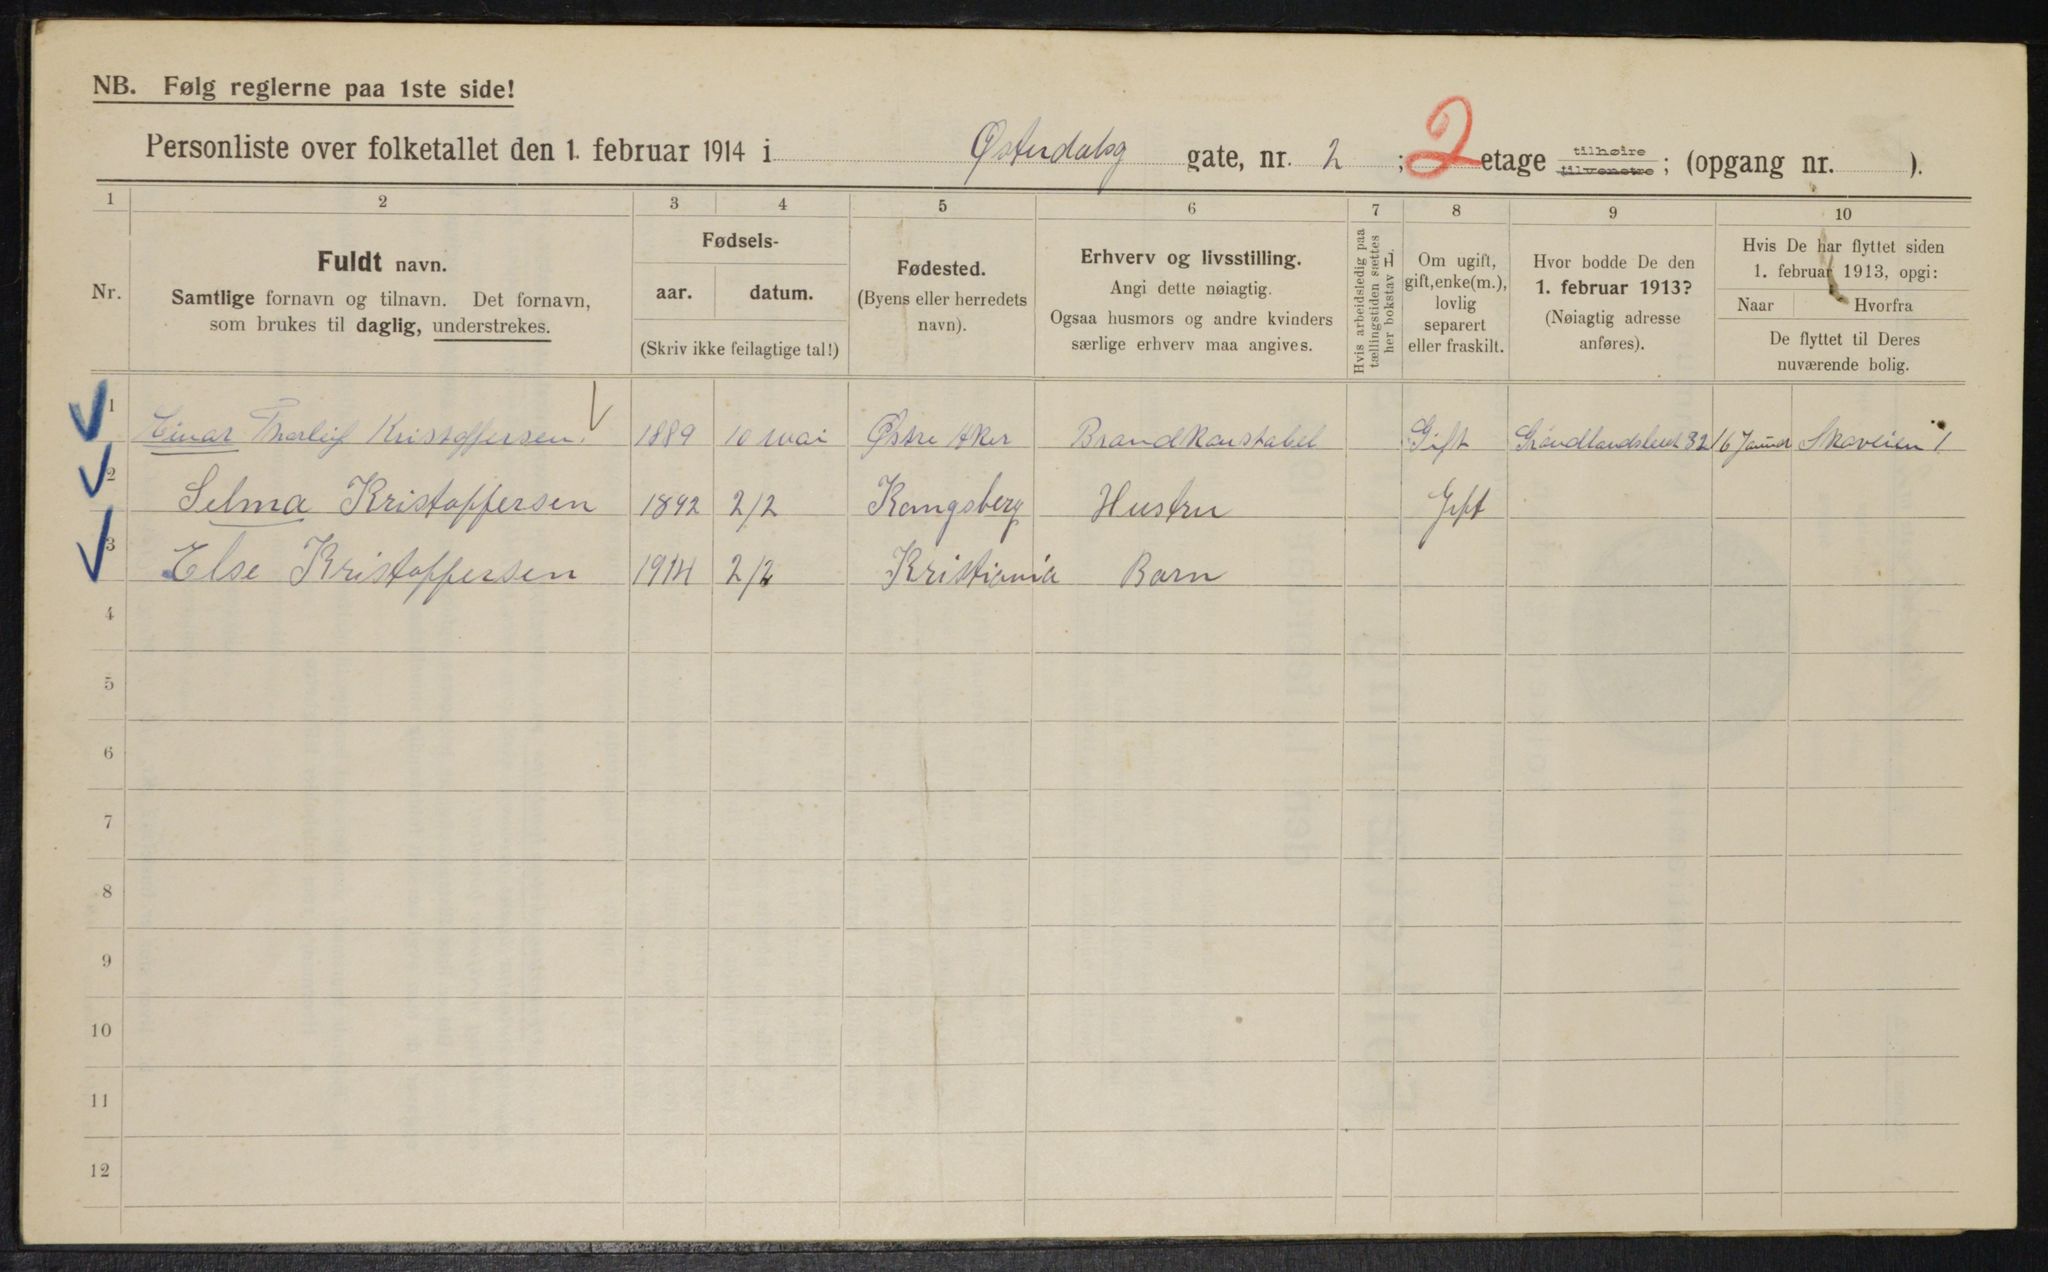 NB. Følg reglerne paa 1ste side!
Personliste over folketallet den 1. februar 1914 i Østerdalsg gate, nr. 2 ; 2 etage tilhøire tilvenstre ; (opgang nr. ).
1 2 3 4 5 6 7 8 9 10
Nr.
Fuldt navn.
Samtlige fornavn og tilnavn. Det fornavn,
som brukes til daglig, understrekes.
Fødsels-
aar. datum.
(Skriv ikke feilagtige tal!)
Fødested.
(Byens eller herredets
navn).
Erhverv og livsstilling.
Angi dette nøiagtig.
Ogsaa husmors og andre kvinders
særlige erhverv maa angives.
Hvis arbeidsledig paa
tællingstiden sættes
her bokstav L.
Om ugift,
gift, enke(m.),
lovlig
separert
eller fraskilt.
Hvor bodde De den
1. februar 1913?
(Nøiagtig adresse
anføres).
Hvis De har flyttet siden
1. februar 1913, opgi:
Naar Hvorfra
De flyttet til Deres
nuværende bolig.
1 Einar Thorleif Kristoffersen. 1889 10 mai Østre Aker Brandkonstabel Gift Grøndlandsleret 32 16 Januar Skaveien 1
2 Selma Kristoffersen 1892 2/2 Kongsberg Hustru Gift
3 Else Kristoffersen 1914 2/2 Kristiania Barn
4
5
6
7
8
9
10
11
12